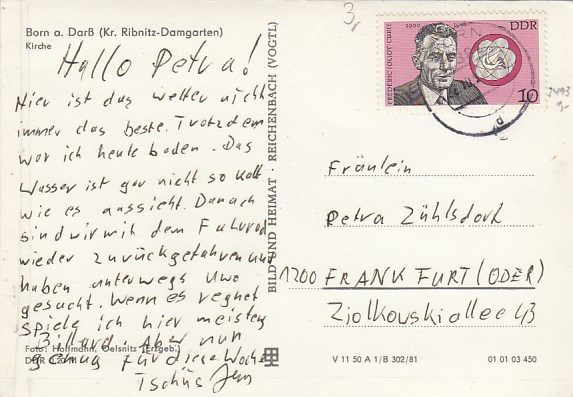 Born a. Darß (Kr. Ribnitz-Damgarten)
Kirche
Hallo Petra!
Hier ist das wetter nicht
immer das beste. Trotzdem
war ich heute baden. Das
Wasser ist gar nicht so kalt
wie es aussieht. Danach
sind wir mit dem Fahrrad
wieder zurückgefahren und
haben unterwegs Uwe
gesucht. Wenn es regnet
spiele ich hier meistens
Billard. Aber nun
genug für diese Woche
Tschüs Jen
Foto: Hoffmann, Oelsnitz (Erzgeb.)
DDR
BILD UND HEIMAT · REICHENBACH (VOGTL)
3,
FRÉDÉRIC JOLIOT-CURIE
1900
DDR
10
Fräulein
Petra Zühlsdorf
1200 FRANKFURT (ODER)
Ziolkowskiallee 43
V 11 50 A 1/B 302/81
01 01 03 450